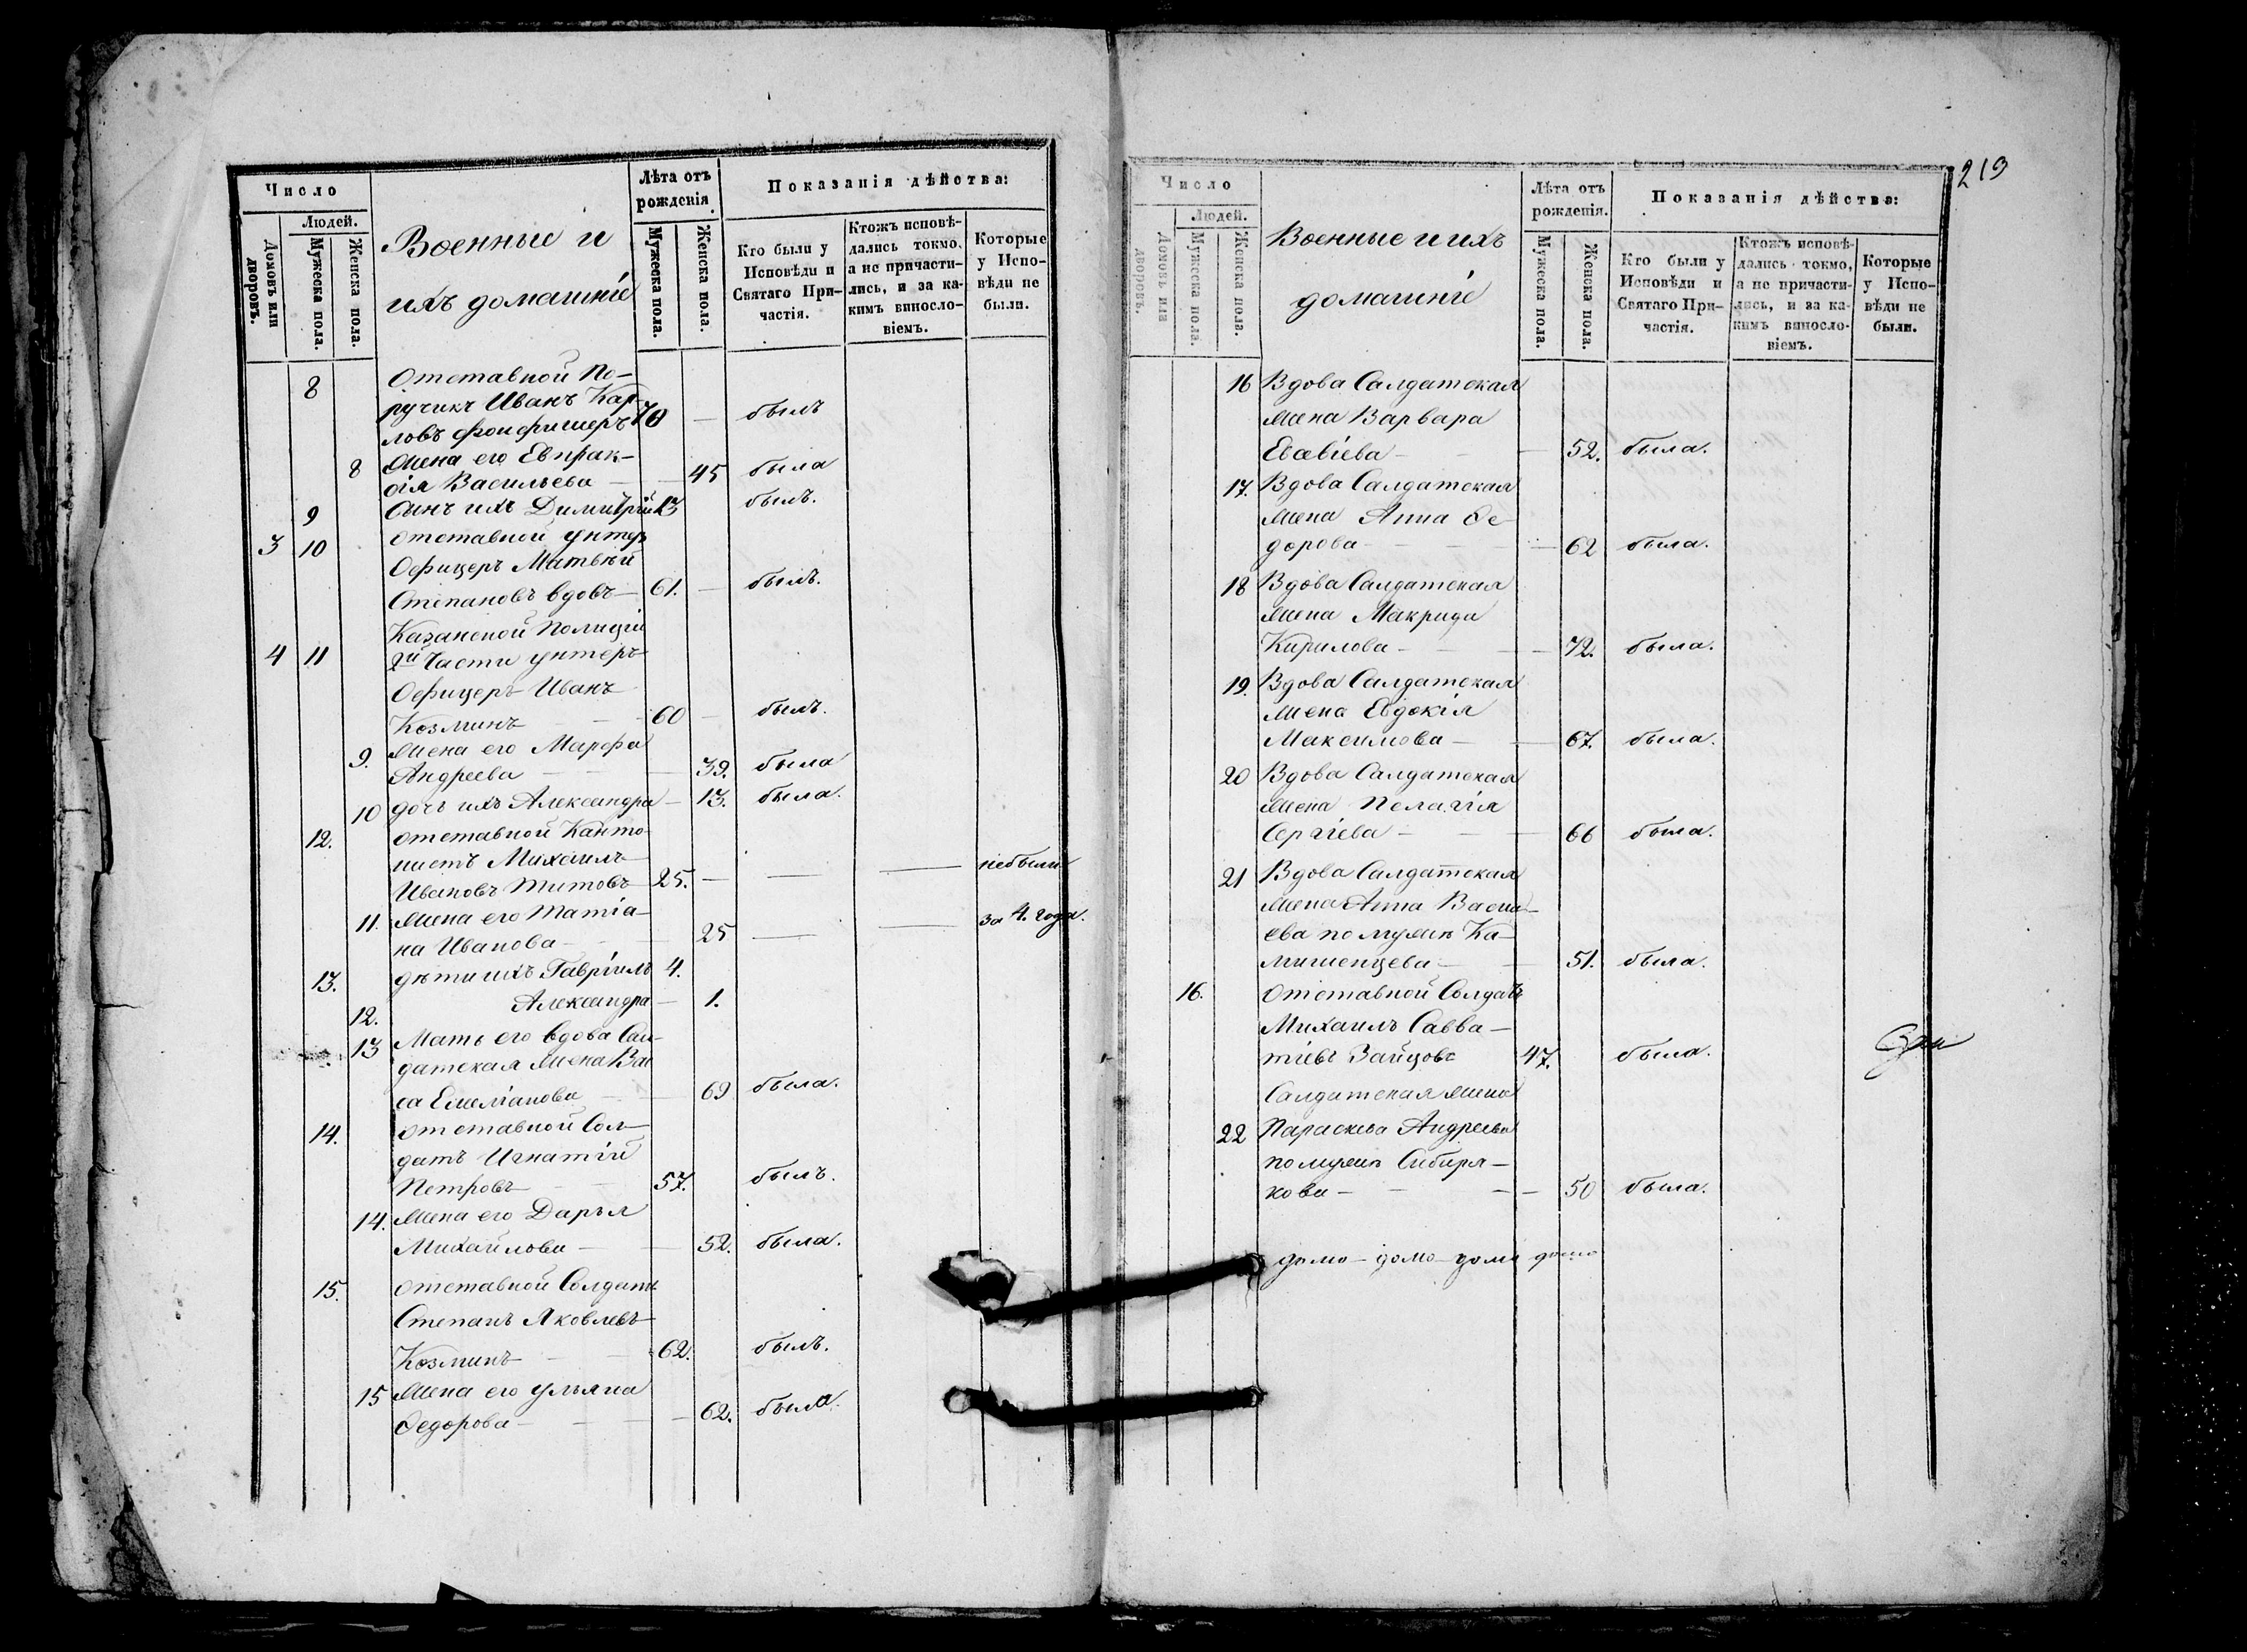 Число
Людей.
Домовъ или дворовъ.
Мужеска пола.
Женска пола.
Военные и
ихъ домашніе
Лѣта отъ
рожденія.
Мужеска пола.
Женска пола.
Показанія дѣйства:
Кто были у
Исповѣди и
Святаго При-
частія.
Ктожъ исповѣ-
дались токмо,
а не причасти-
лись, и за ка-
кимъ винословіемъ.
Которые
у Испо-
вѣди не
были.
8 Отставной По-
ручикъ Иванъ Кар-
ловъ фонфишеръ 70 — былъ
8 Жена его Евпрак-
сія Васильева — 45 была
9 Сынъ ихъ Димитрій 13 былъ.
3 10 Отставной унтеръ
Офицеръ Матвѣй
Степановъ вдовъ — 61. — былъ.
Казанской Полиціи
4 11 2й Части унтеръ
Офицеръ Иванъ
Козминъ — 60 — былъ.
9. Жена его Марфа
Андреева — 39. была
10 дочь ихъ Александра — 13. была.
12. Отставной Канто-
нистъ Михаилъ
Ивановъ Титовъ 25. — — — небыли
11. Жена его Татіа-
на Иванова — 25 — — за 4. года.
13. дѣти ихъ Гавріилъ 4.
12. Александра — 1.
13 Мать его вдова Сал-
датская жена
Емеліанова — 69 была.
14. Отставной Сол-
датъ Игнатій
Петровъ — 57. былъ.
14. Жена его Дарья
Михайлова — 52. была.
15. Отставной Солдатъ
Степанъ Яковлевъ
Козминъ — 62. былъ.
15 Жена его Ульяна
Федорова — 62. была.
219
Число
Людей.
Домовъ или дворовъ.
Мужеска пола.
Женска пола.
Военные и ихъ
домашніе
Лѣта отъ
рожденія.
Мужеска пола.
Женска пола.
Показанія дѣйства:
Кто были у
Исповѣди и
Святаго При-
частія.
Ктожъ исповѣ-
дались токмо,
а не причасти-
лись, и за ка-
кимъ винословіемъ.
Которые
у Испо-
вѣди не
были.
16 Вдова Салдатская
жена Варвара
Евсѣвіева — 52. была.
17. Вдова Салдатская
жена Анна Фе-
дорова — 62 была.
18 Вдова Салдатская
жена Макрида
Кирилова — 72. была.
19. Вдова Салдатская
жена Евдокія
Максимова — 67. была.
20 Вдова Салдатская
жена Пелагія
Сергіева — 66 была.
21 Вдова Салдатская
жена Анна Васил-
ева по мужѣ Ка-
мышенцева — 51. была.
16. Отставной Солдатъ
Михаилъ Савва-
тіевъ Зайцовъ 47. была.
Салдатская жена
22 Параскева Андреева
по мужѣ Сибиря-
кова — 50 была.
домо — домо — домо